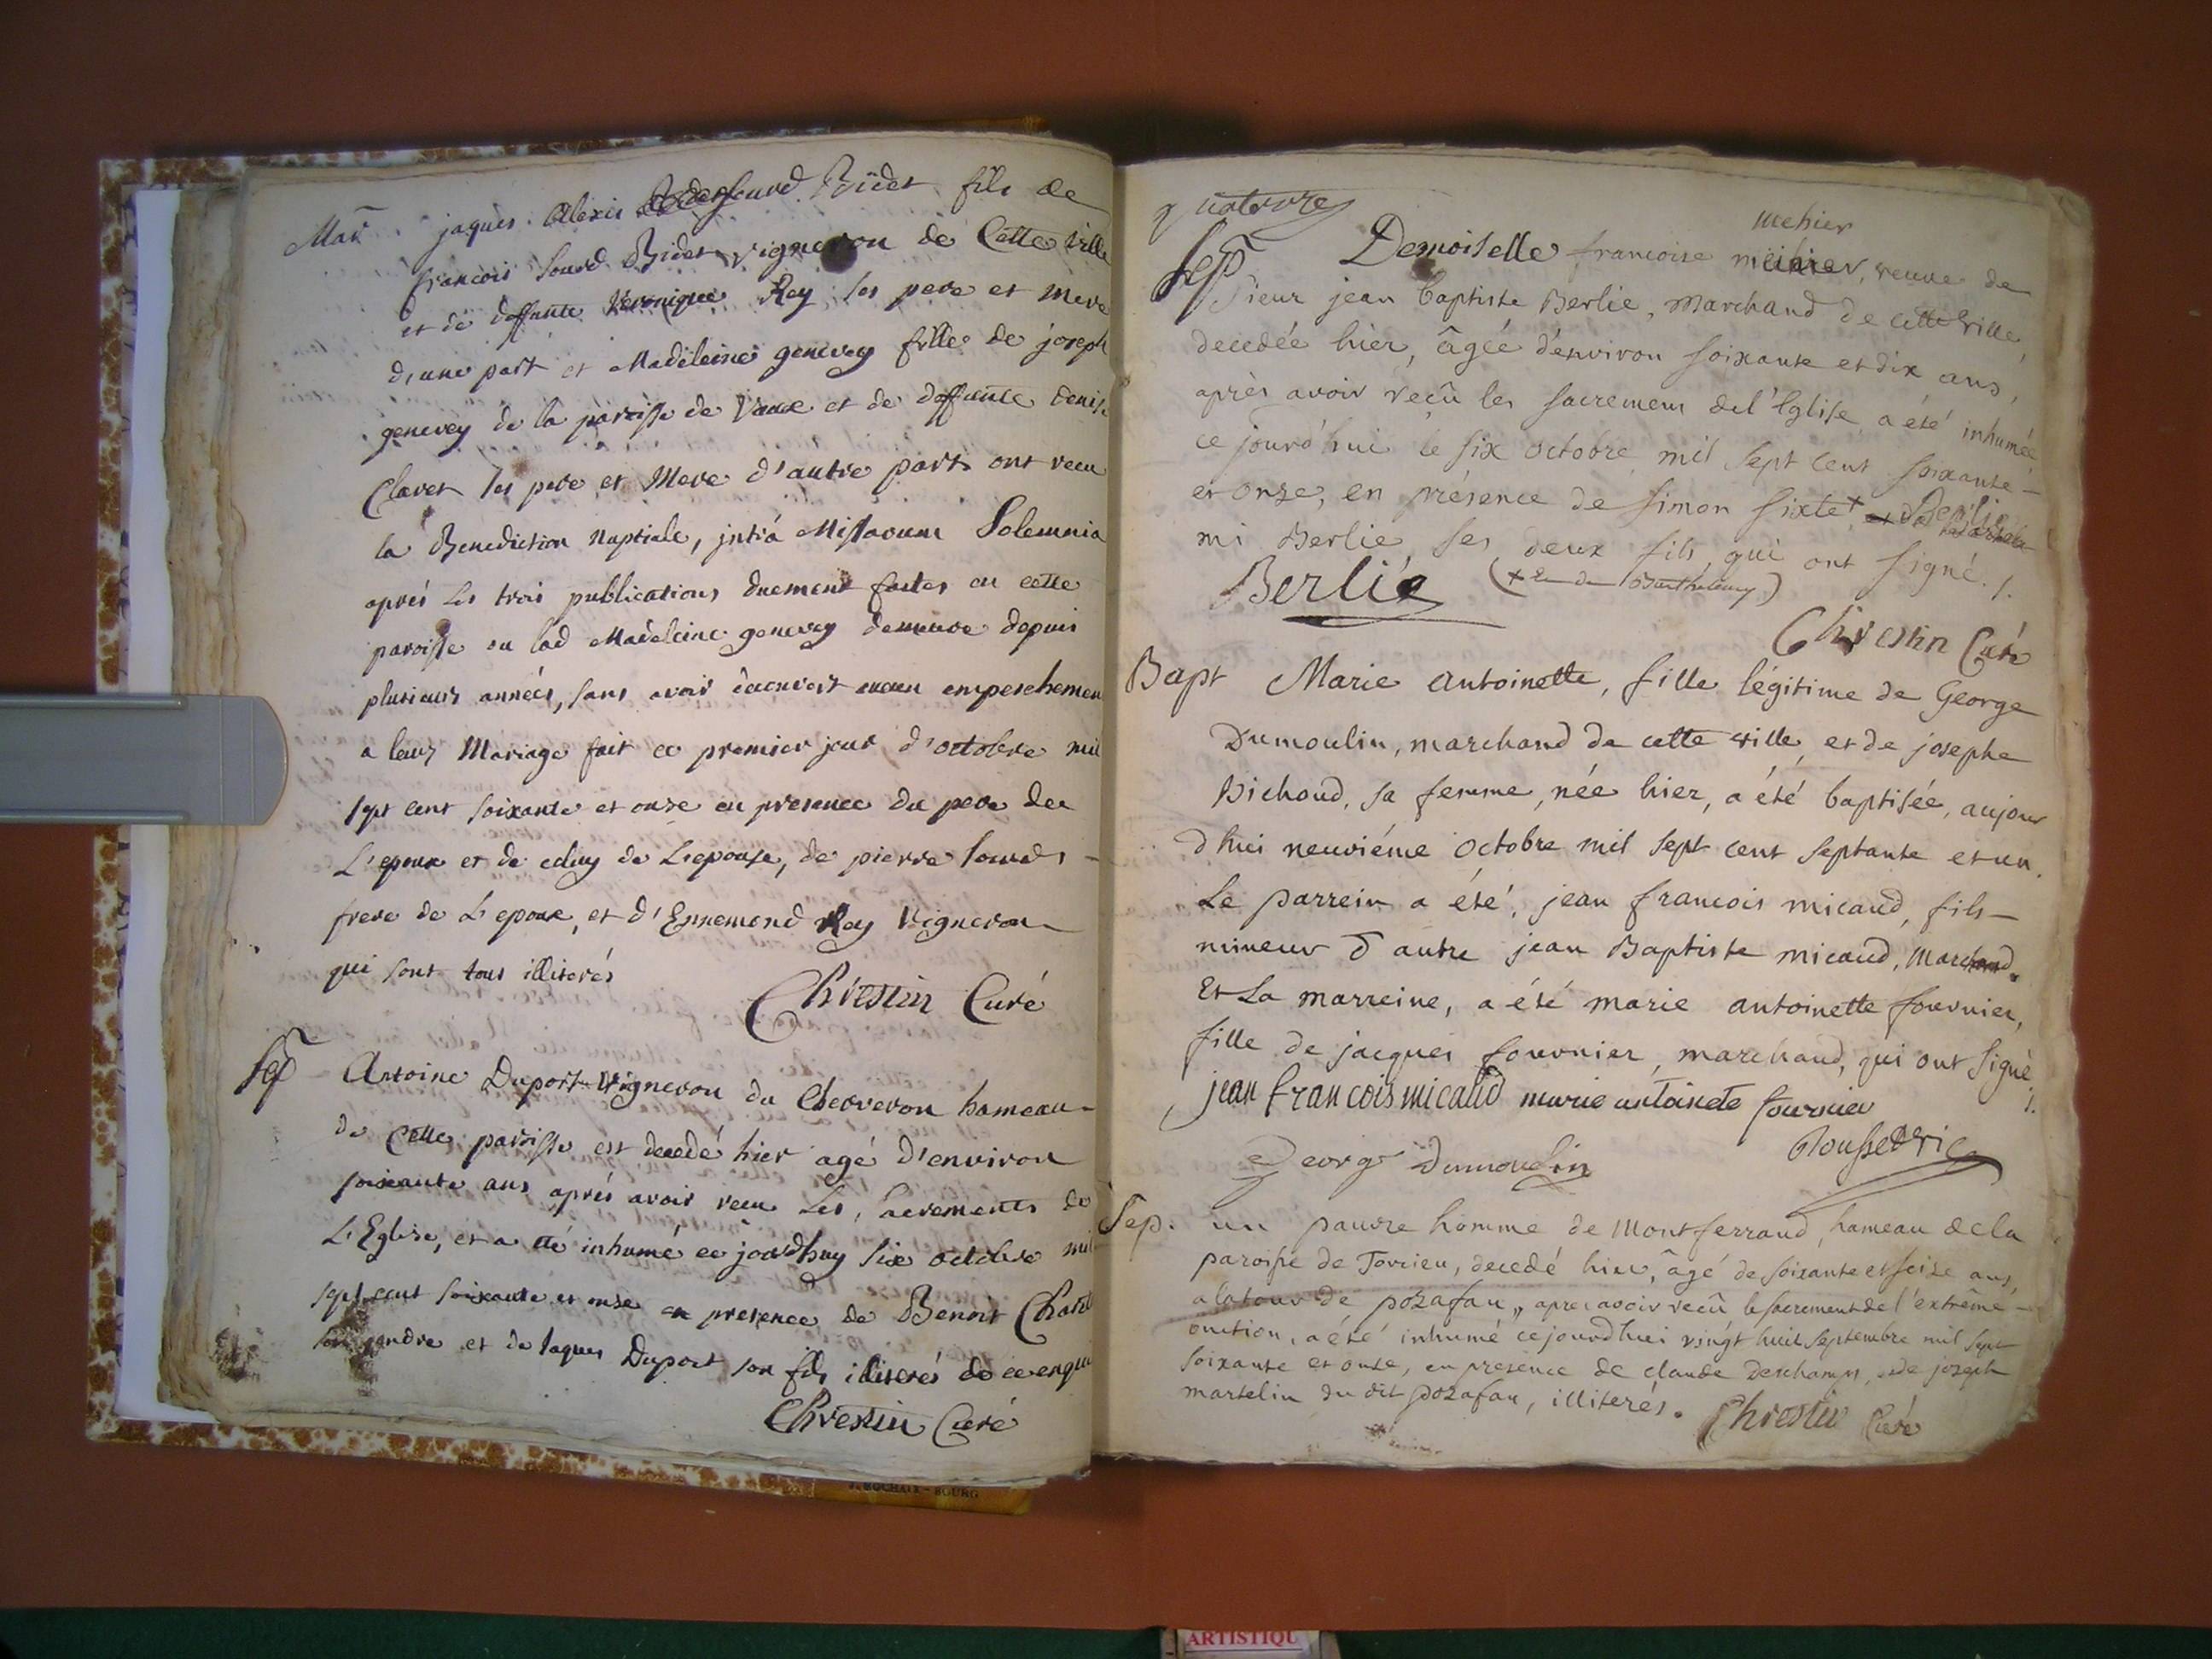 Mar. jaques Alexis Bidet fils de
francois Sourd Bidet vigneron de Cette ville
et de deffunte Veronique Rey ses pere et mere
d'une part et Madeleine genevey fille de joseph
genevey de la paroisse de Vaux et de deffunte denise
Claret ses pere et Mere d'autre part ont recu
la Benediction Nuptiale, intrá Missarum Solemnia
aprés les trois publications duement faites en cette
paroisse ou lad Madeleine genevey demeure depuis
plusieurs années, sans avoir decouvert aucun empeschemen
a leur Mariage fait ce premier jour d'octobre mil
sept cent soixante et onze en presence du pere de
L'epoux et de celuy de L'epouse, de pierre sourd
frere de L'epoux, et d'Ennemond Rey Vigneron
qui sont tous illiterés
Chrestin Curé
Sep Antoine Duport Vigneron du Cherveron hameau
de Cette paroisse est decedé hier agé d'environ
soixante ans aprés avoir recu Les Sacrements de
L'Eglise, et a eté inhumé ce jourdhuy six octobre mil
sept cent soixante et onze en presence de Benoit
son gendre et de Jaques Duport son fils illiterés de ce enquis
Chrestin Curé
quatorze
mehier
Sep. Demoiselle francoise veuve de
Sieur jean baptiste Berlie, Marchand de cette ville,
decedée hier, âgée d'environ soixante et dix ans,
après avoir reçû les sacremens de l'Eglise a été inhumée
ce jourd'hui le six octobre mil sept cent soixante -
et onze, en présence de simon sixte + Berlie
mi Berlie, ses deux fils, qui ont signé. /.
Berlié (+ et de Barthelemy)
Chrestin Curé
Bapt Marie Antoinette, fille légitime de George
Dumoulin, marchand de cette ville, et de josephe
Bichoud, sa femme, née hier, a été baptisée, aujour
d'hui neuviéme octobre mil sept cent septante et un.
Le parrein a été, jean francois micaud, fils -
mineur d'autre jean Baptiste micaud, Marchand.
Et La marreine, a été marie antoinette fournier,
fille de jacques fournier, marchand, qui ont signé /.
jean francois micaud marie antoinete fournier
George Dumoulin Roussed vic
Sep. un pauvre homme de Montferrand, hameau de la
paroisse de Torcieu, decedé hier, âgé de soixante et seize ans,
a la tour de pozafan, apres avoir reçû le sacrement de l'extrême -
onction, a été inhumé ce jourd'hui vingt huit septembre mil sept
soixante et onze, en presence de claude Deschamps, et de joseph
martelin du dit pozafan, illiterés. Chrestin Curé
J. ROCHAIX - BOURG
ARTISTIQU